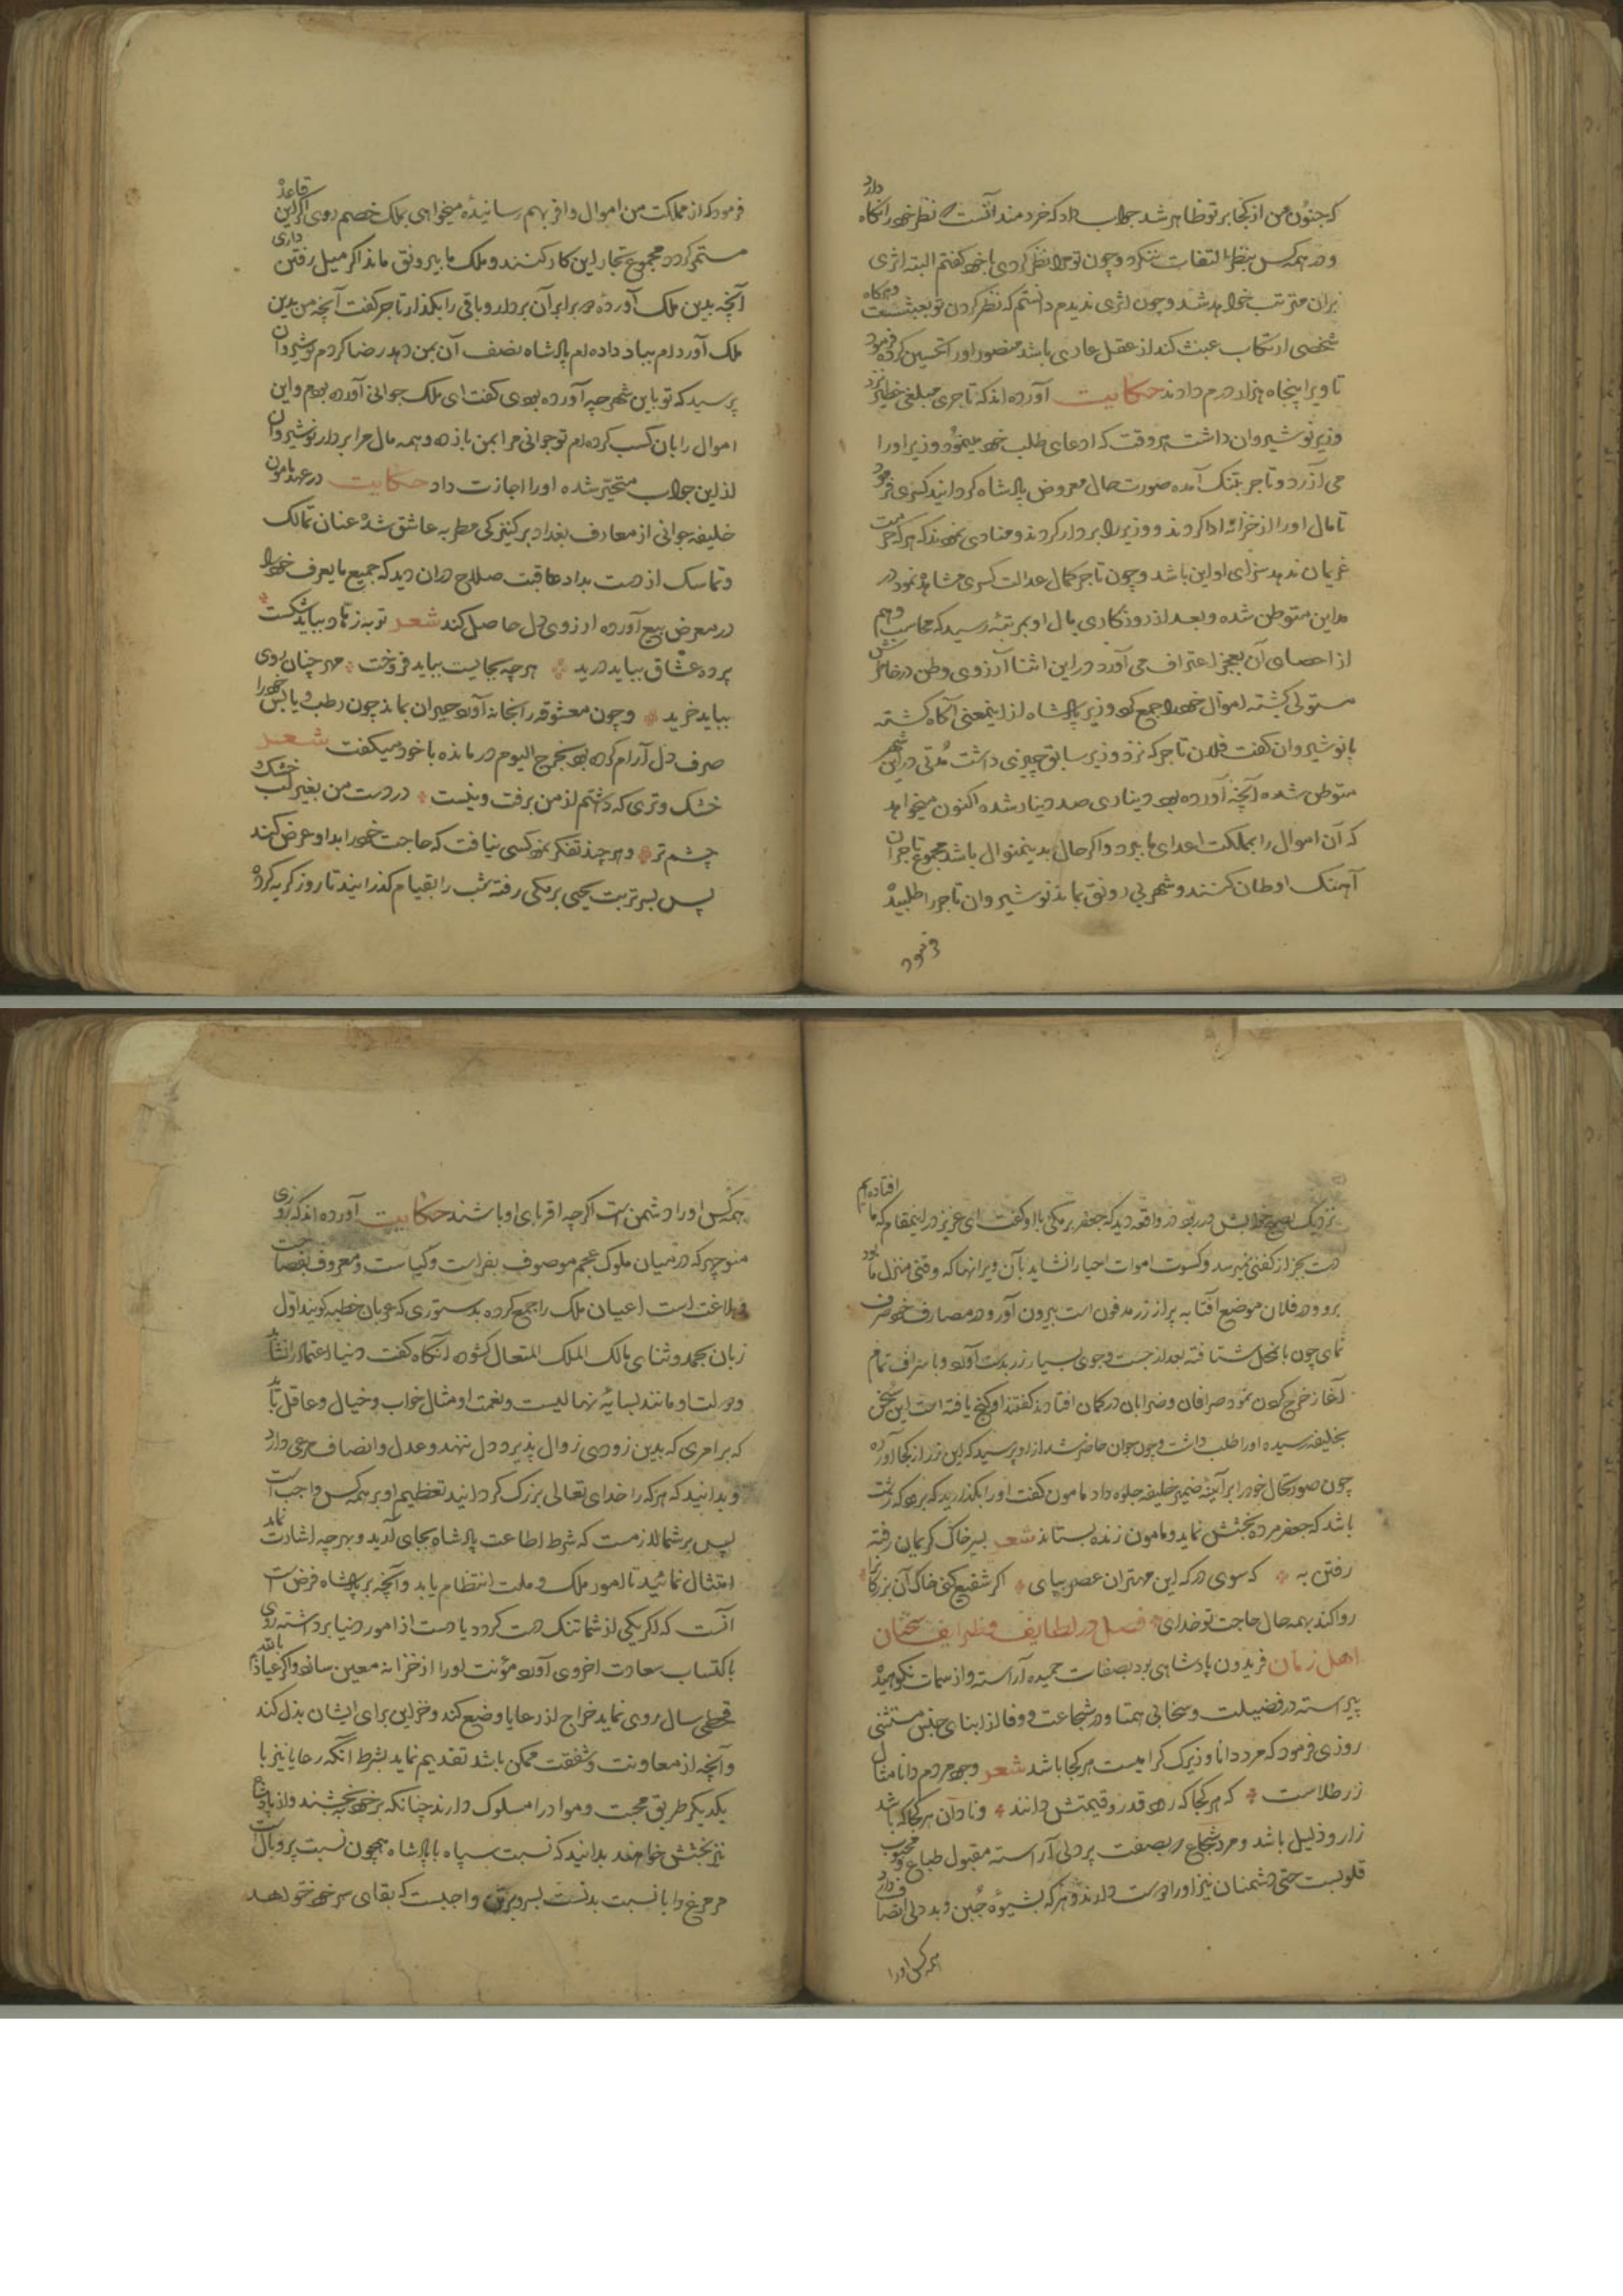 که جنون من از کجا بر تو ظاهر شد جواب داد که خردمند آنست که نظر خود را نگاه دارد
و در همه کس بنظر التفات ننگرد و چون تو مرا نظر کردی با خود گفتم البته اثری
بران مترتب خواهد شد و چون اثری ندیدم دانستم که نظر کردن تو بعبثست و هرگاه
شخصی ارتکاب عبث کند از عقل عاری باشد منصور او را تحسین کرده فرمود
تا ویرا پنجاه هزار درم دادند حکایت آورده اند که تاجری مبلغی خطیر نزد
وزیر نوشیروان داشت هر وقت که ادعای طلب خود مینمود وزیر او را
می آزرد و تاجر بتنک آمده صورت حال معروض پادشاه کردانید کسری فرمود
تا مال او را از خزانه ادا کردند و وزیر را بر دار کردند و منادی نمودند که هر که حرمت
غریمان ندهد سزای او این باشد و چون تاجر کمال عدالت کسری مشاهده نمود در
مداین متوطن شده و بعد از روزکاری مال او بمرتبهٔ رسید که محاسب وهم
از احصای آن بعجز اعتراف می آورد در این اثنا آرزوی وطن در خاطرش
مستولی کشته اموال خود را جمع کرد وزیر پادشاه از اینمعنی آکاه کشته
با نوشیروان کفت فلان تاجر که نزد وزیر سابق چیزی داشت مدتی در این شهر
متوطن شده آنچه آورده بود دیناری صد دینار شده اکنون میخواهد
که آن اموال را بمملکت اعدای ما ببرد و اکر حال بدینمنوال باشد مجموع تاجران
آهنک اوطان کنند و شهر بی رونق بماند نوشیروان تاجر را طلبیده
فرمود
فرمود که از مملکت من اموال وافر بهم رسانیدهٔ میخواهی بملک خصم روی اکر این قاعده
مستمر کردد مجموع تجار این کار کنند و ملک ما بیرونق ماند اکر میل رفتن داری
آنچه بدین ملک آوردهٔ برابر آن بردار و باقی را بکذار تاجر کفت آنچه من بدین
ملک آوردام بباد داده ام پادشاه نصف آن بمن دهد رضا کردم نوشیروان
پرسید که تو باین شهر چه آورده بودی کفت ای ملک جوانی آورده بودم و این
اموال را بان کسب کرده ام تو جوانی مرا بمن باز ده و همه مال مرا بردار نوشیروان
از این جواب متحیر شده او را اجازت داد حکایت در عهد مامون
خلیفه جوانی از معارف بغداد بر کنیزکی مطربه عاشق شده عنان تمالک
و تماسک از دست بداد عاقبت صلاح دران دید که جمیع ما یعرف خود را
در معرض بیع آورده ارزوی دل حاصل کند شعر توبهٔ زهاد بباید شکست
پردهٔ عشاق بباید درید هرچه بجاییست بباید فروخت مهر چنان روی
بباید خرید و چون معشوقه را بخانه آورد حیران بماند چون رطب و یابس خود را
صرف دل آرام کرده بود بخرج الیوم درمانده با خود میکفت شعر
خشک و تری که داشتم از من برفت و نیست در دست من بغیر لب خشک
چشم تر و هر چند تفکر نمود کسی نیافت که حاجت خود را بدو عرض کند
پس بسر تربت یحیی برمکی رفته شب را بقیام کذرانیند تا روز کریه کرد
نزدیک بصبح خوابش در ربود در واقعه دید که جعفر برمکی با او کفت ای عزیز در اینمقام که ما افتاده ایم
دست بجز از کفنی نمیرسد و کسوت اموات احیا را نشاید بآن ویرانها که وقتی منزل ما بود
برو و در فلان موضع آفتابه پر از زر مدفون است بیرون آور و در مصارف خود صرف
نمای چون بانمحل شتافته بعد از جست و جوی بسیار زر بدست آورد و باسراف تمام
آغاز خرج کردن نمود صرافان و ضرابان در کمان افتادند کفتند او کنج یافته است این سخن
بخلیفه رسیده او را طلب داشت و چون جوان حاضر شد از او پرسید که این زر از کجا آورده
چون صورتحال خود را بر آینه ضمیر خلیفه جلوه داد مامون کفت او را بکذارید که زشت
باشد که جعفر مرده بخشش نماید و مامون زنده بستاند شعر بسر خاک کریمان رفته
رفتن به که سوی درکه این مهتران عصر بپای اکر شفیع کنی خاک آن بزرکان را
روا کند بهمه حال حاجت تو خدای فصل در لطایف و ظرایف سخنان
اهل زمان فریدون پادشاهی بود بصفات حمیده آراسته و از سمات نکوهیده
پیراسته در فضیلت و سخا بی همتا و در شجاعت و وفا از ابنای جنس مستثنی
روزی فرمود که مرد دانا و زیرک کرامیست هر کجا باشد شعر وجود مردم دانا مثال
زر طلاست که هر کجا که رود قدر و قیمتش دانند و نادان هر کجا که باشد
زار و ذلیل باشد و مرد شجاع بصفت پردلی آراسته مقبول طباع و محبوب
قلوبست حتی دشمنان نیز او را دوست دارند و هر که بشیوهٔ جبن و بددلی اتصاف دارد
همه کس او را
همه کس او را دشمن است اکر چه اقربای او باشند حکایت آورده اند که روزی
منوچهر که در میان ملوک عجم موصوف بفراست و کیاست و معروف بفصاحت
و بلاغت است اعیان ملک را جمع کرده بدستوری که عربان خطبه کویند اول
زبان بحمد و ثنای مالک الملک المتعال کشود آنکاه کفت دنیا اعتماد را نشاید
و دولت او مانند سایهٔ نهالیست و نعمت او مثال خواب و خیال و عاقل باید
که بر امری که بدین زودی زوال پذیرد دل ننهد و عدل و انصاف مرعی دارد
و بدانید که هر که را خدای تعالی بزرک کردانید تعظیم او بر همه کس واجب است
پس بر شما لازمست که شرط اطاعت پادشاه بجای آرید و بهر چه اشارت نماید
امتثال نمائید تا امور ملک و ملت انتظام یابد و آنچه بر پادشاه فرض است
آنست که اکر یکی از شما تنک دست کردد یا دست از امور دنیا برداشته روی
باکتساب سعادت اخروی آورد مؤنت او را از خزانه معین سازد و اکر عیاذا بالله
قحطی سال روی نماید خراج از رعایا وضع کند و خزاین برای ایشان بذل کند
و آنچه از معاونت و شفقت ممکن باشد تقدیم نماید بشرط آنکه رعایا نیز با
یکدیکر طریق محبت و موادرا مسلوک دارند چنانکه بر خود ببخشند و از پادشاه
نیز بخشش خواهند بدانید که نسبت سپاه با پادشاه همچون نسبت پر و بال است
مر مرغ را با نسبت بدنست بسر و بر تن واجبست که بقای سر خود خواهد